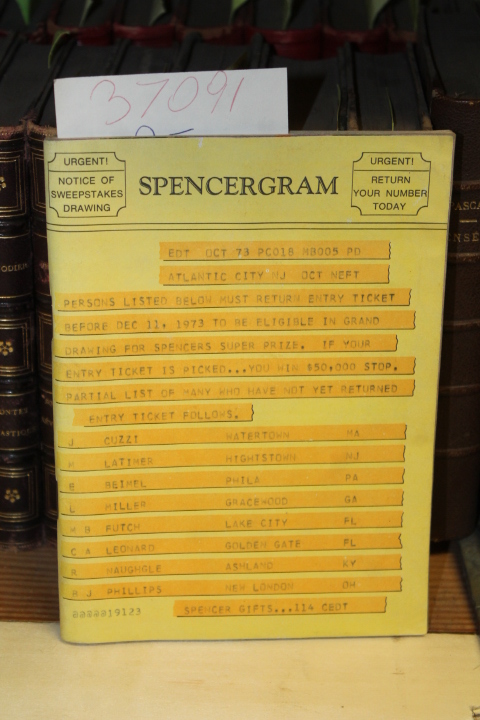 37091
URGENT!
NOTICE OF
SWEEPSTAKES
DRAWING
SPENCERGRAM
URGENT!
RETURN
YOUR NUMBER
TODAY
EDT OCT 73 PC018 MB005 PD
ATLANTIC CITY NJ OCT NEFT
PERSONS LISTED BELOW MUST RETURN ENTRY TICKET
BEFORE DEC 11, 1973 TO BE ELIGIBLE IN GRAND
DRAWING FOR SPENCERS SUPER PRIZE. IF YOUR
ENTRY TICKET IS PICKED...YOU WIN $50,000 STOP.
PARTIAL LIST OF MANY WHO HAVE NOT YET RETURNED
ENTRY TICKET FOLLOWS.
J CUZZI WATERTOWN MA
LATIMER HIGHTSTOWN NJ
BEIMEL PHILA PA
L MILLER GRACEWOOD GA
B FUTCH LAKE CITY FL
C A LEONARD GOLDEN GATE FL
R MAUGHGLE ASHLAND KY
J PHILLIPS NEW LONDON OH
0000019123
SPENCER GIFTS...114 CEDT